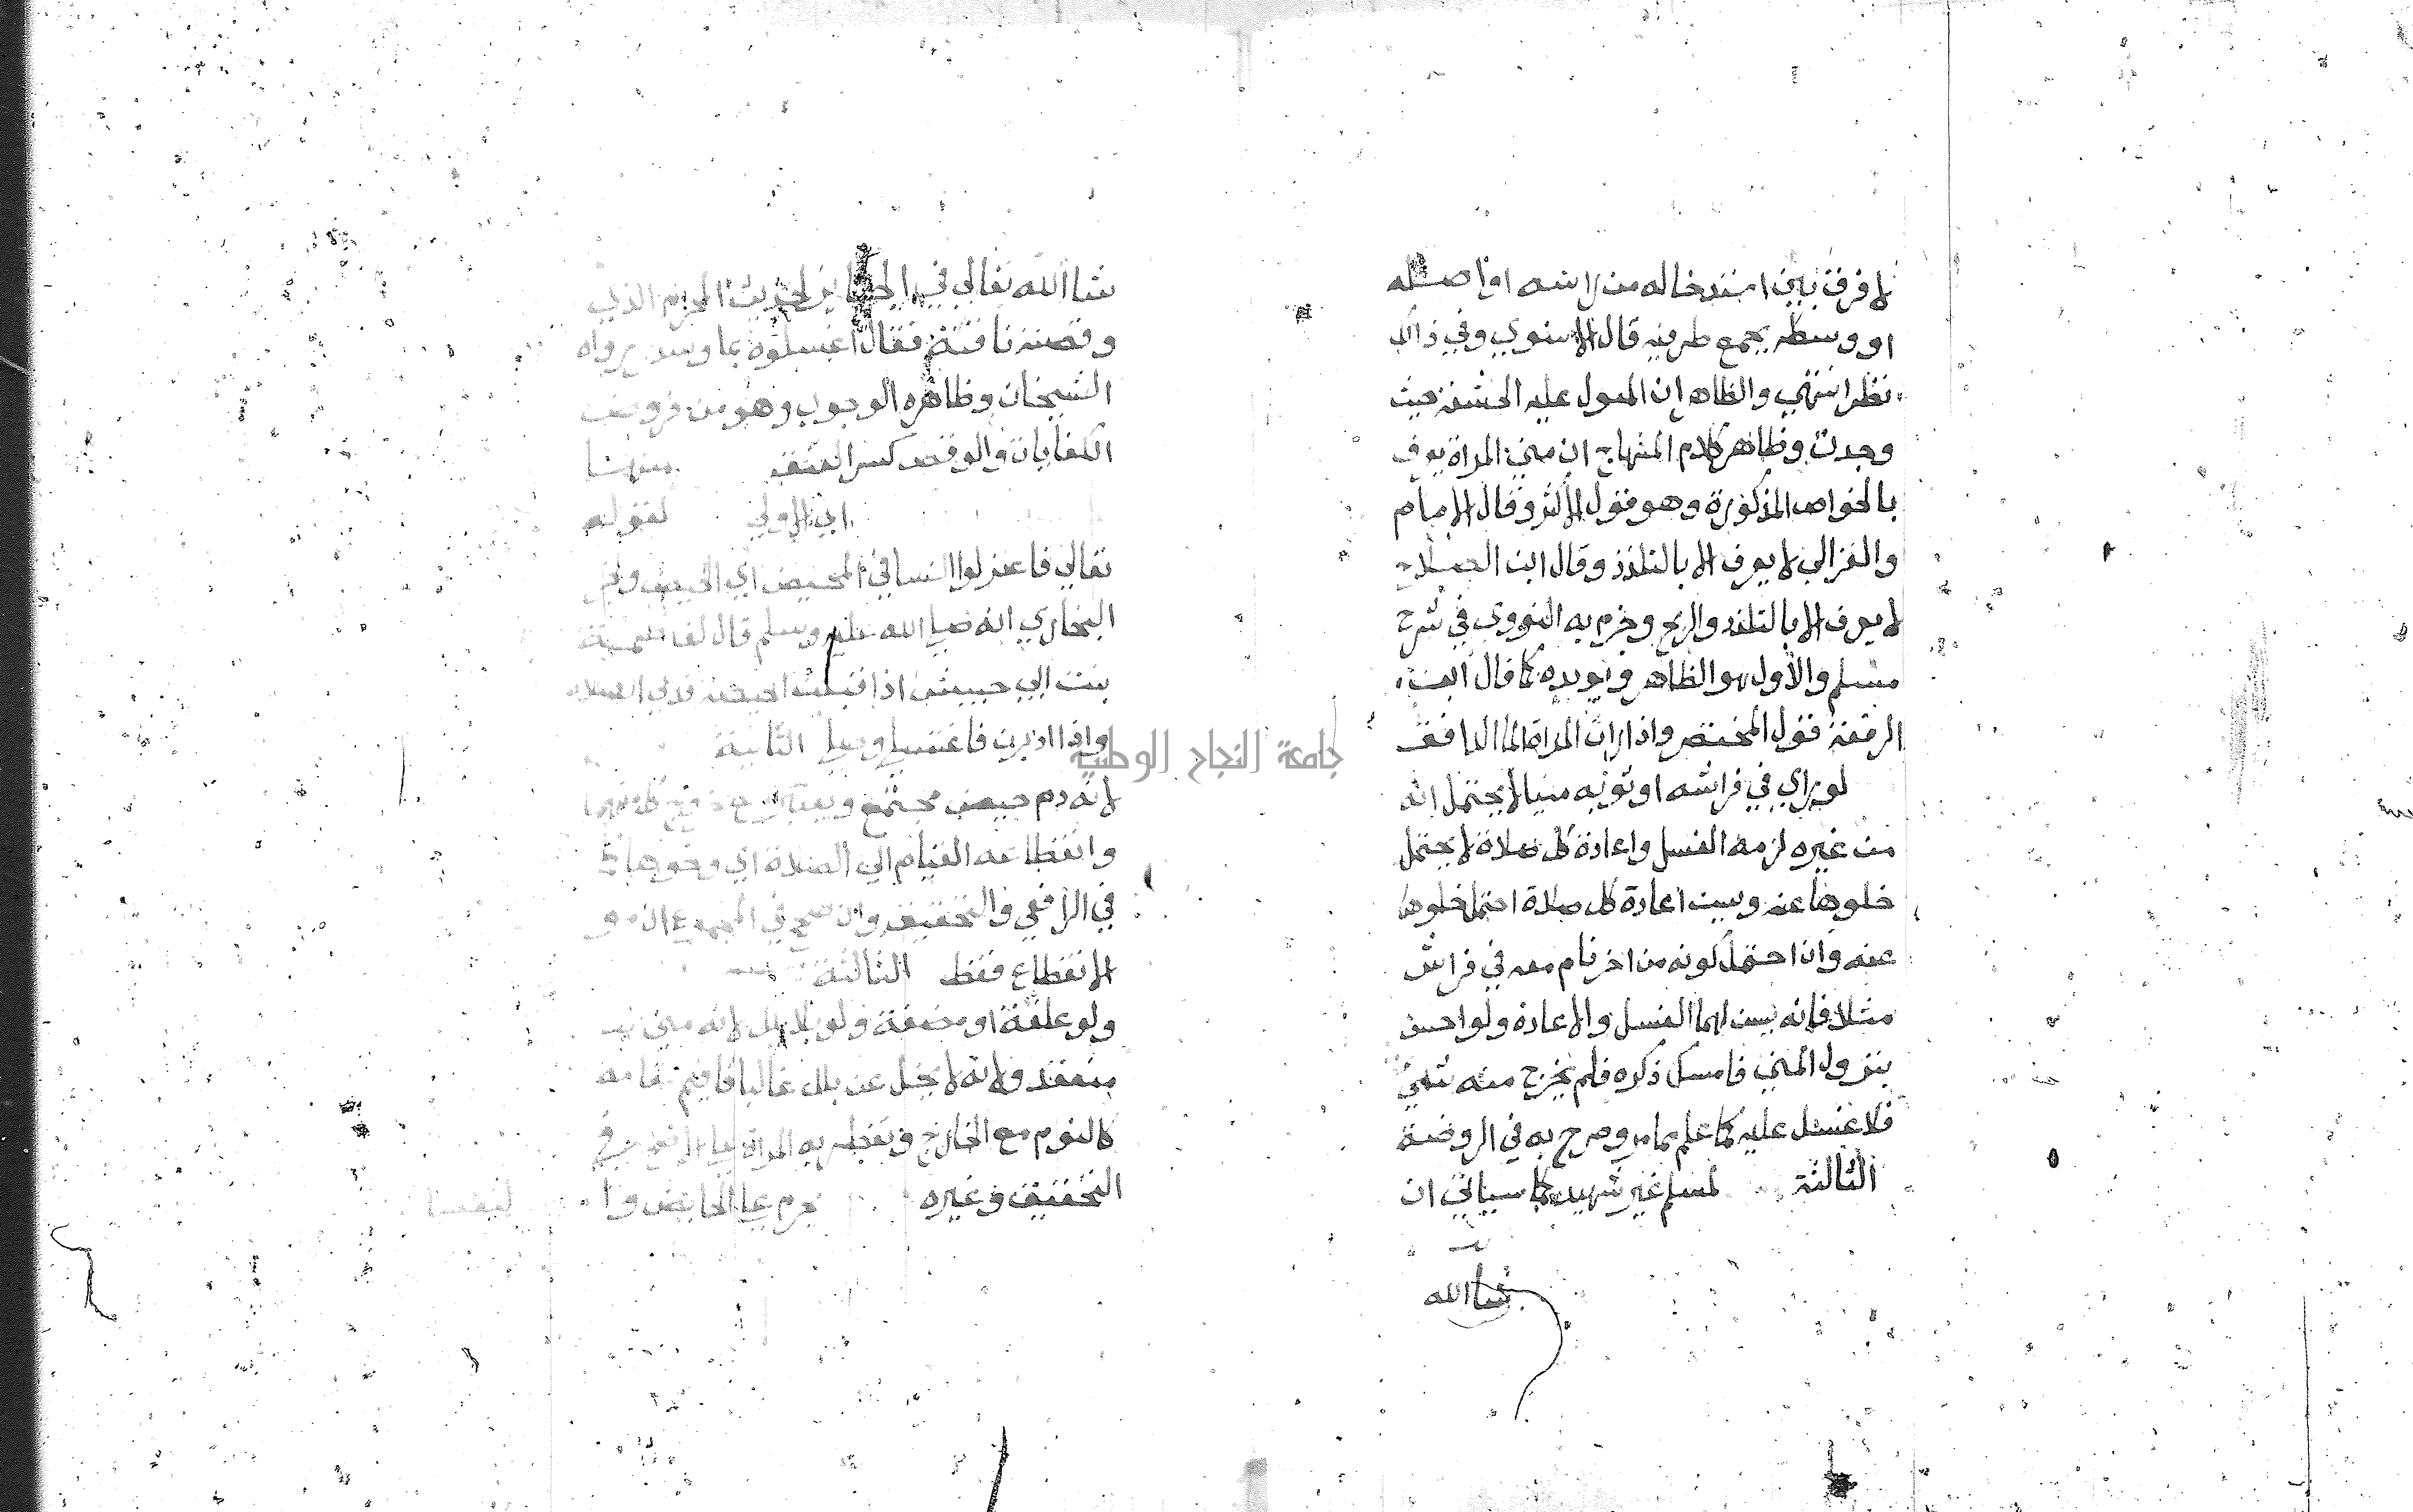 لا فرق بين استدخاله من راسه او اصله
او وسطه يجمع طرفيه قال الاسنوي وفي ذلك
نظر انتهي والظاهر ان المعول عليه الحشفة حيث
وجدت وظاهر كلام المنهاج ان مني المراة يعرف
بالخواص المذكورة وهو قول الاكثر وقال الامام
والغزالي لا يعرف الا بالتلذذ وقال ابن الصلاح
لا يعرف الا بالتلذذ والريح وجزم به النووي في شرح
مسلم والاول هو الظاهر ويويده كما قال ابن
الرفعة قول المختصر واذا رات المراة الماء الدافق
لو راي في فراشه او ثوبه منيا لا يحتمل انه
من غيره لزمه الغسل واعادة كل صلاة لا يحتمل
خلوها عنه ويسن اعادة كل صلاة احتمل خلوها
عنه وان احتمل كونه من اخر نام معه في فراش
مثلا فانه يسن لهما الغسل والاعادة ولو احس
بنزول المني فامسك ذكره فلم يخرج منه شي
فلا غسل عليه كما علم مما مر وصرح به في الروضة
الثالثة لمسلم غير شهيد كما سياتي ان
شا الله
شا الله تعالي في الجنايز لحديث المحرم الذي
وقصته ناقته فقال اغسلوه بما وسدر رواه
الشيخان وظاهره الوجوب وهو من فروض
الكفايات والوقص كسر العنق منها
اي الاولي لقوله
تعالي فاعتزلوا النسا في المحيض اي الحيض ولخبر
البخاري انه صلي الله عليه وسلم قال لفاطمة
بنت ابي حبيش اذا اقبلت الحيضة فدعي الصلاة
واذا ادبرت فاغتسلي وصلي الثانية
لانه دم حيض مجتمع ويعتبر مع خروج كل منهما
وانقطاعه القيام الي الصلاة اي ونحوها كما
في الرافعي والتحقيق وان صحح في المجموع ان مو
الانقطاع فقط الثالثة
ولو علقة او مضغة ولو بلا بلل لانه مني
منعقد ولانه لا يخلو عن بلل غالبا فاقيم مقامه
كالنوم مع الخارج وتفطر به المراة علي الاصح في
التحقيق وغيره يحرم علي الحايض وا
لنفسا
جامعة النجاح الوطنية